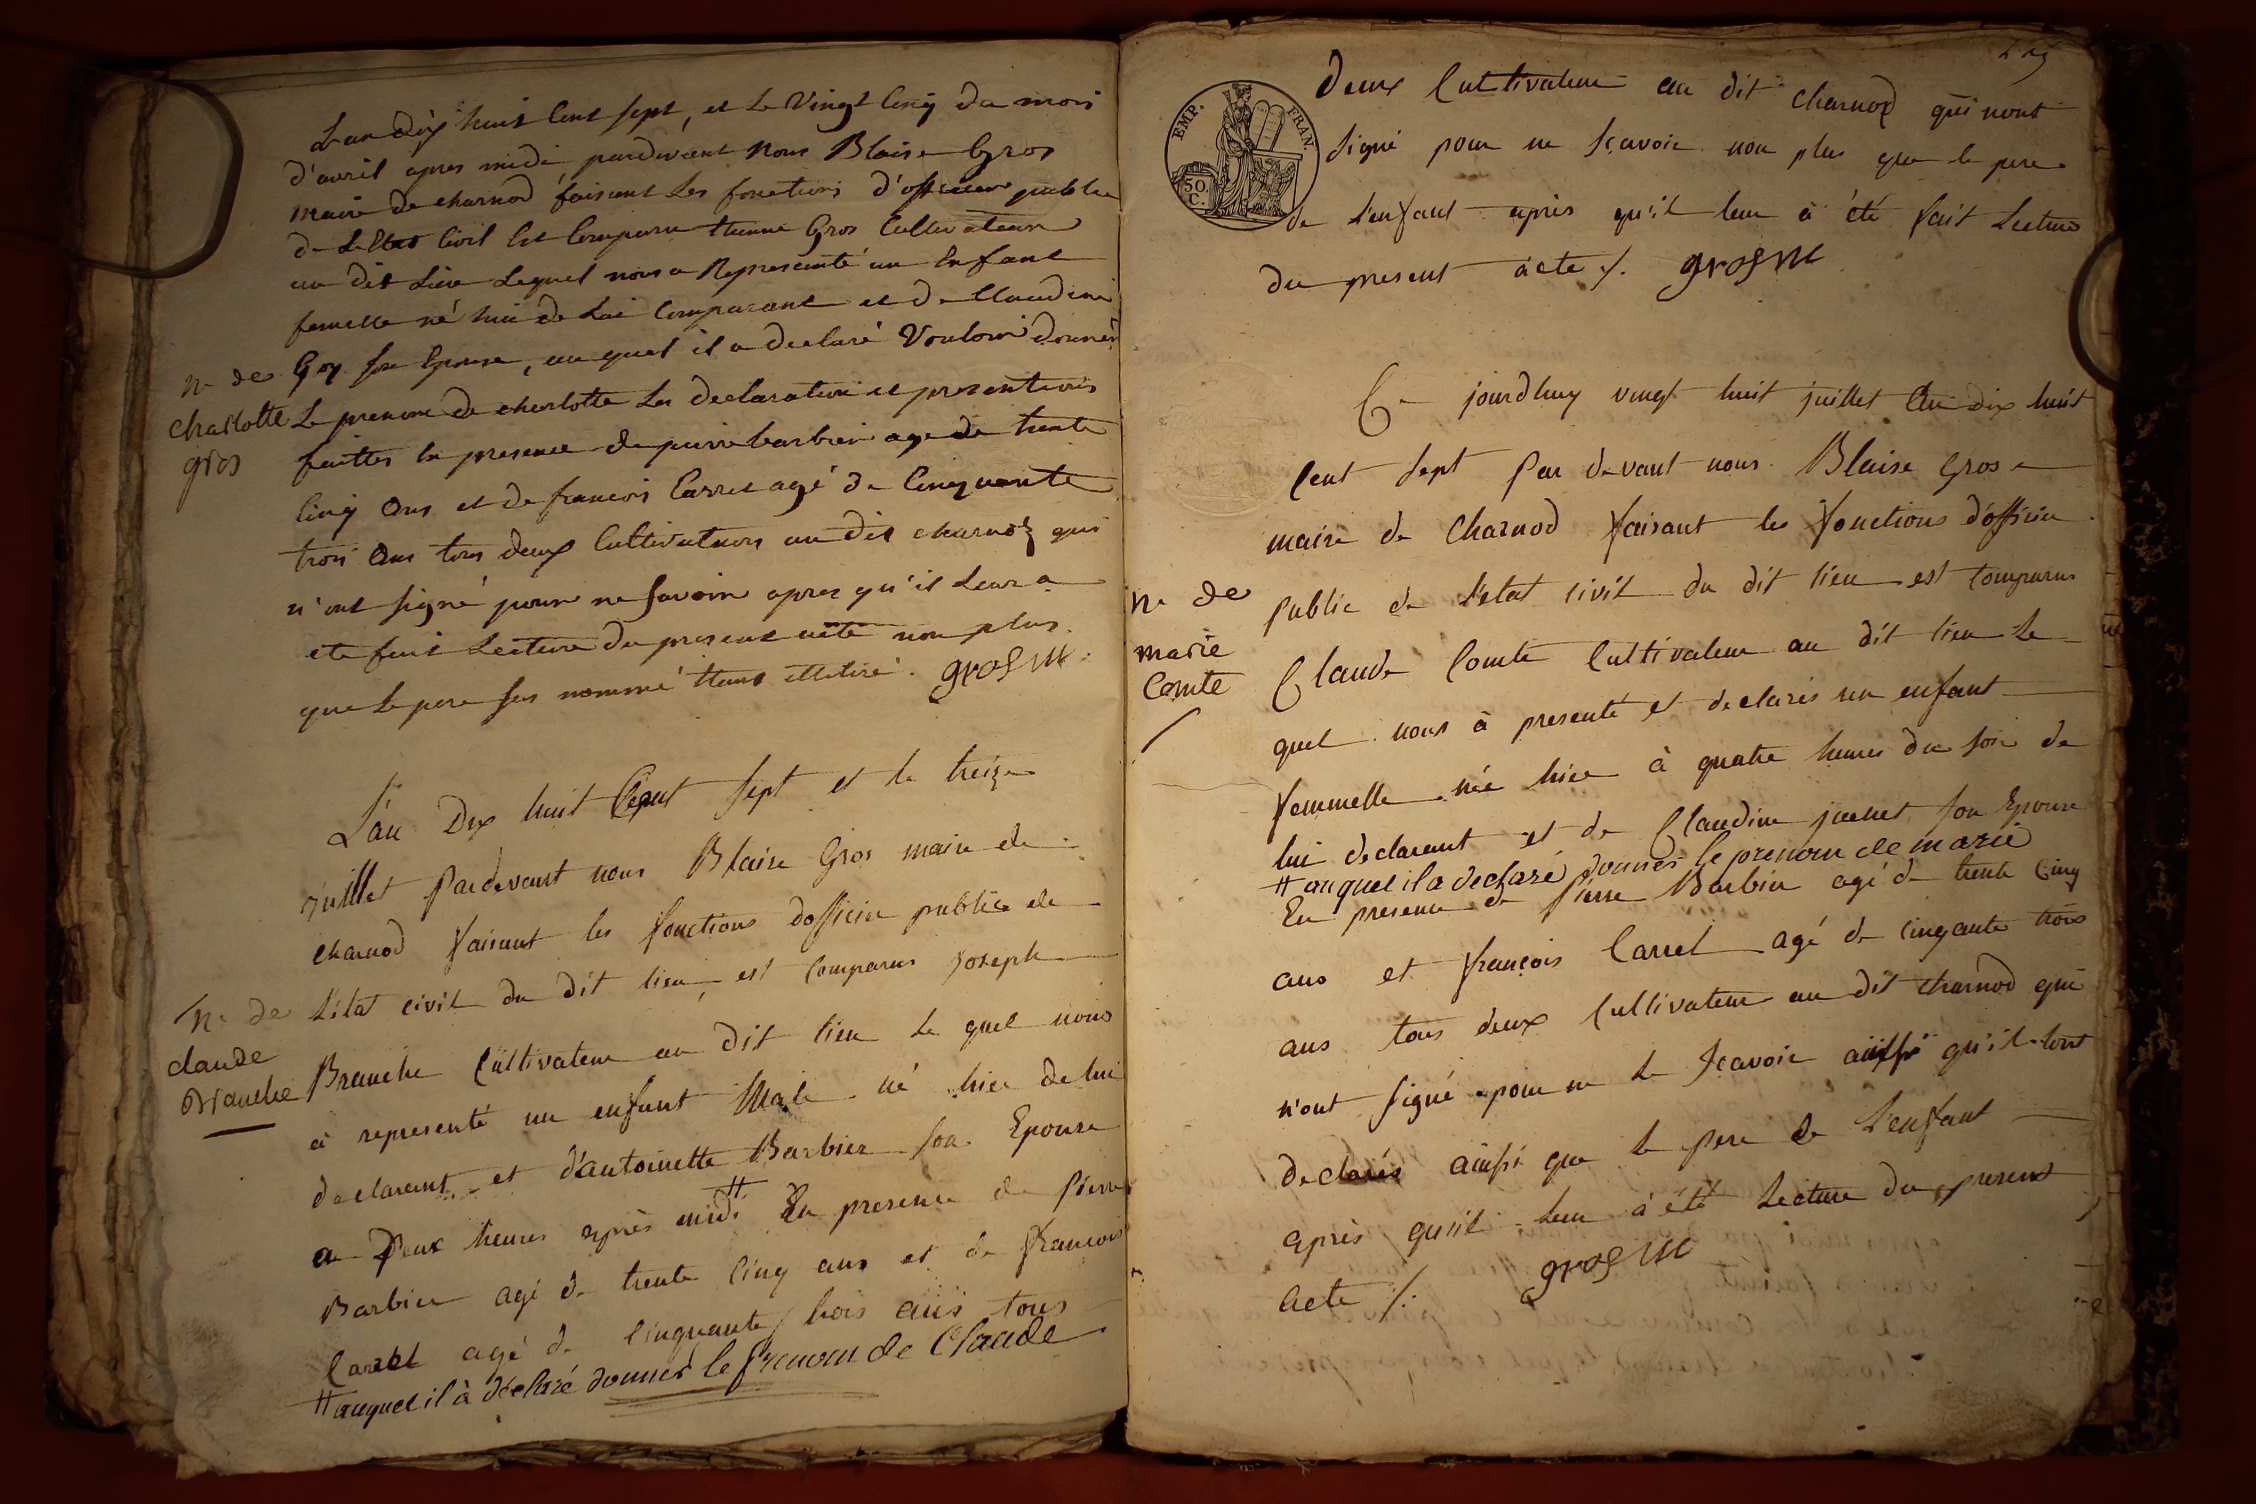 L'an dix huit Cent sept, et le Vingt Cinq du mois
d'avril apres midi pardevant Nous Blaise Gros
Maire de charnod faisant les fonctions d'officier public
de L'Etat Civil Est Comparu Etienne Gros Cultivateur
au dit Lieu Lequel nous a Representé un Enfant
femelle né hui de Lui Comparant et de Claudine
N. de
Charlotte
gros
Goy son Epouse, au quel il a declaré Vouloir donner
Le prenom de charlotte Les declaration et presentations
faittes En presence de pierre barbier age de trente
Cinq Ans et de francois Carrel agé de Cinquante
trois Ans tous deux Cultivateurs au dit charnod qui
n'ont signé pour ne savoir apres qu'il Leur a
ete fait Lecture du present acte non plus
que le pere sus nommé illetiré. gros m
L'an Dix huit Cent sept et le treize
juillet Pardevant nous Blaise Gros maire de
charnod faisant les fonctions dofficier public de
N. de
claude
Branche
L'état civil du dit lieu, est comparus joseph
Branche Cultivateur au dit lieu le quel nous
à representé un enfant Male né hier de lui
declarent et d'antoinette Barbier son Epouse
a Deux heures après midi # En presence de Pierre
Barbier agé de trente Cinq ans et de francois
Carrel agé de Cinquante trois ans tous
# auquel il à déclaré donner le prenom de Claude
EMP. FRAN.
50.
C.
Deux Cultivateur au dit charnod qui nont
signé pour ne sçavoir non plus que le pere
de L'enfant après qu'il leur à été fait Lecture
du present acte /. gros m
Ce jourdhuy vingt huit juillet An dix huit
Cent sept Par devant nous Blaise Gros
maire de Charnod faisant les fonctions d'officier
N. de
marie
Comte
public de l'état civil du dit lieu est comparus
Claude Comte Cultivateur au dit lieu le
quel nous à presenté et declarés un enfant
femmelle née hier à quatre heures du soir de
lui declarent et de Claudine jaenet son Epouse
# auquel il a declaré donner le prenom de marie
En presence de Pierre Barbier agé de trente Cinq
ans et françois Carrel agé de cinqante trois
ans tous deux Cultivateur au dit charnod qui
n'ont signé pour ne le sçavoir ainssi qu'il lont
declarés ainssi que le pere de L'enfant
après qu'il leur à été Lecture du present
acte /. gros m